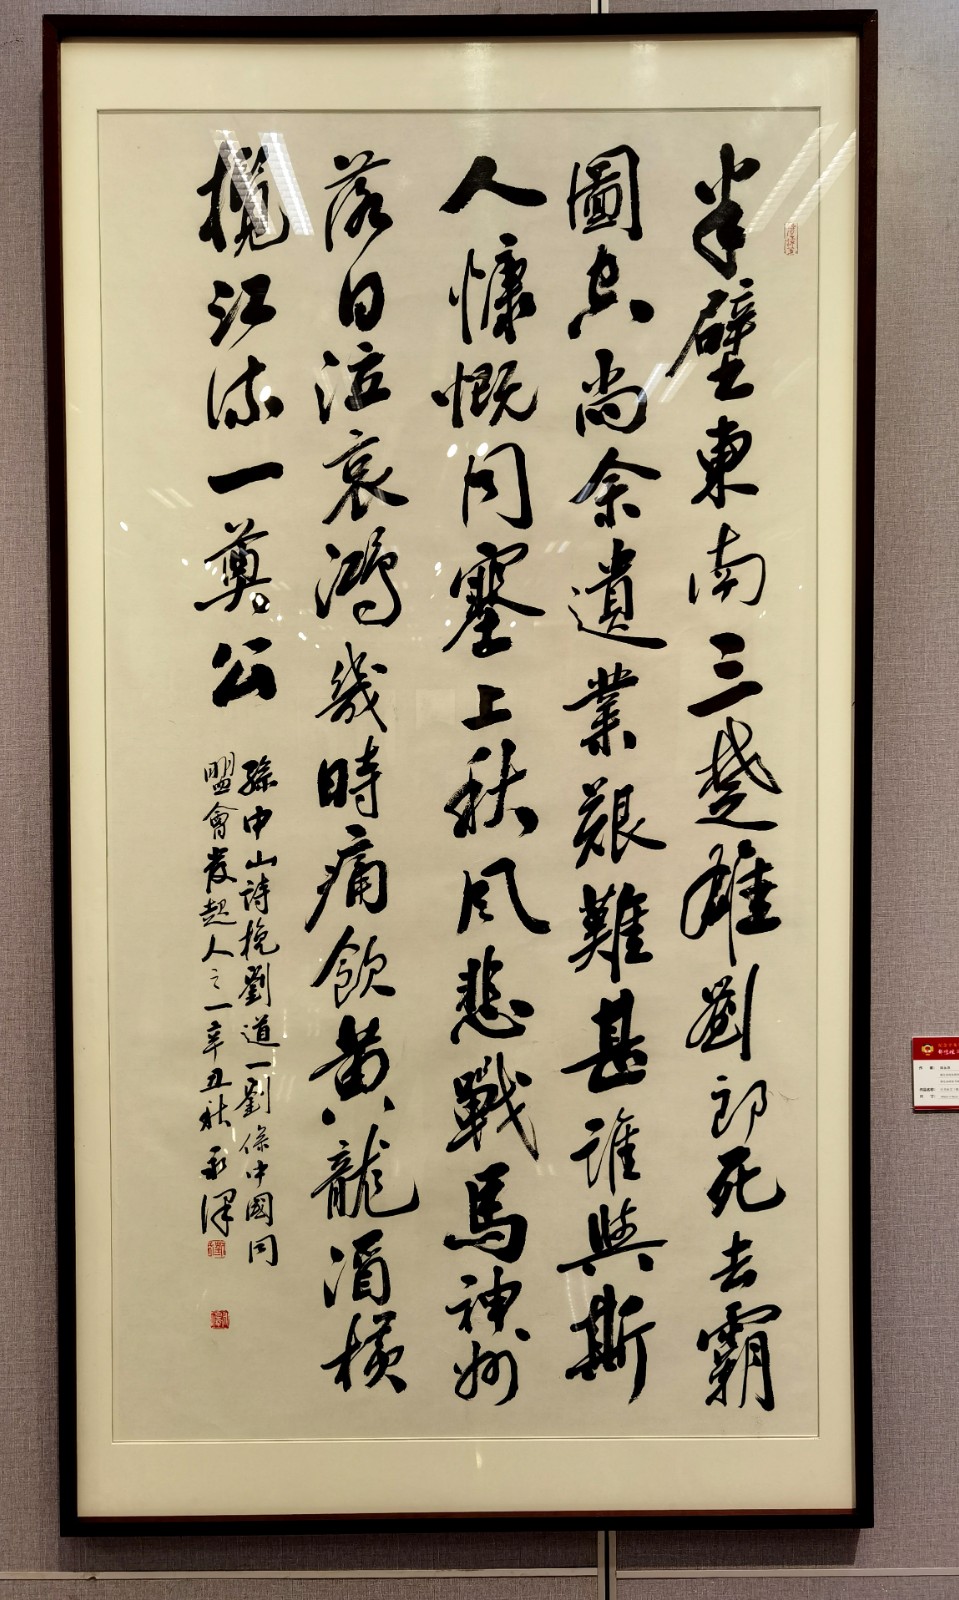 半壁東南三楚雄劉郎死去霸
圖空尚余遺業艱難甚誰與斯
人慷慨同塞上秋風悲戰馬神州
落日泣哀鴻幾時痛飲黄龍酒橫
攬江流一奠公
孫中山詩挽劉道一劉係中國同
盟會發起人之一辛丑秋永澤